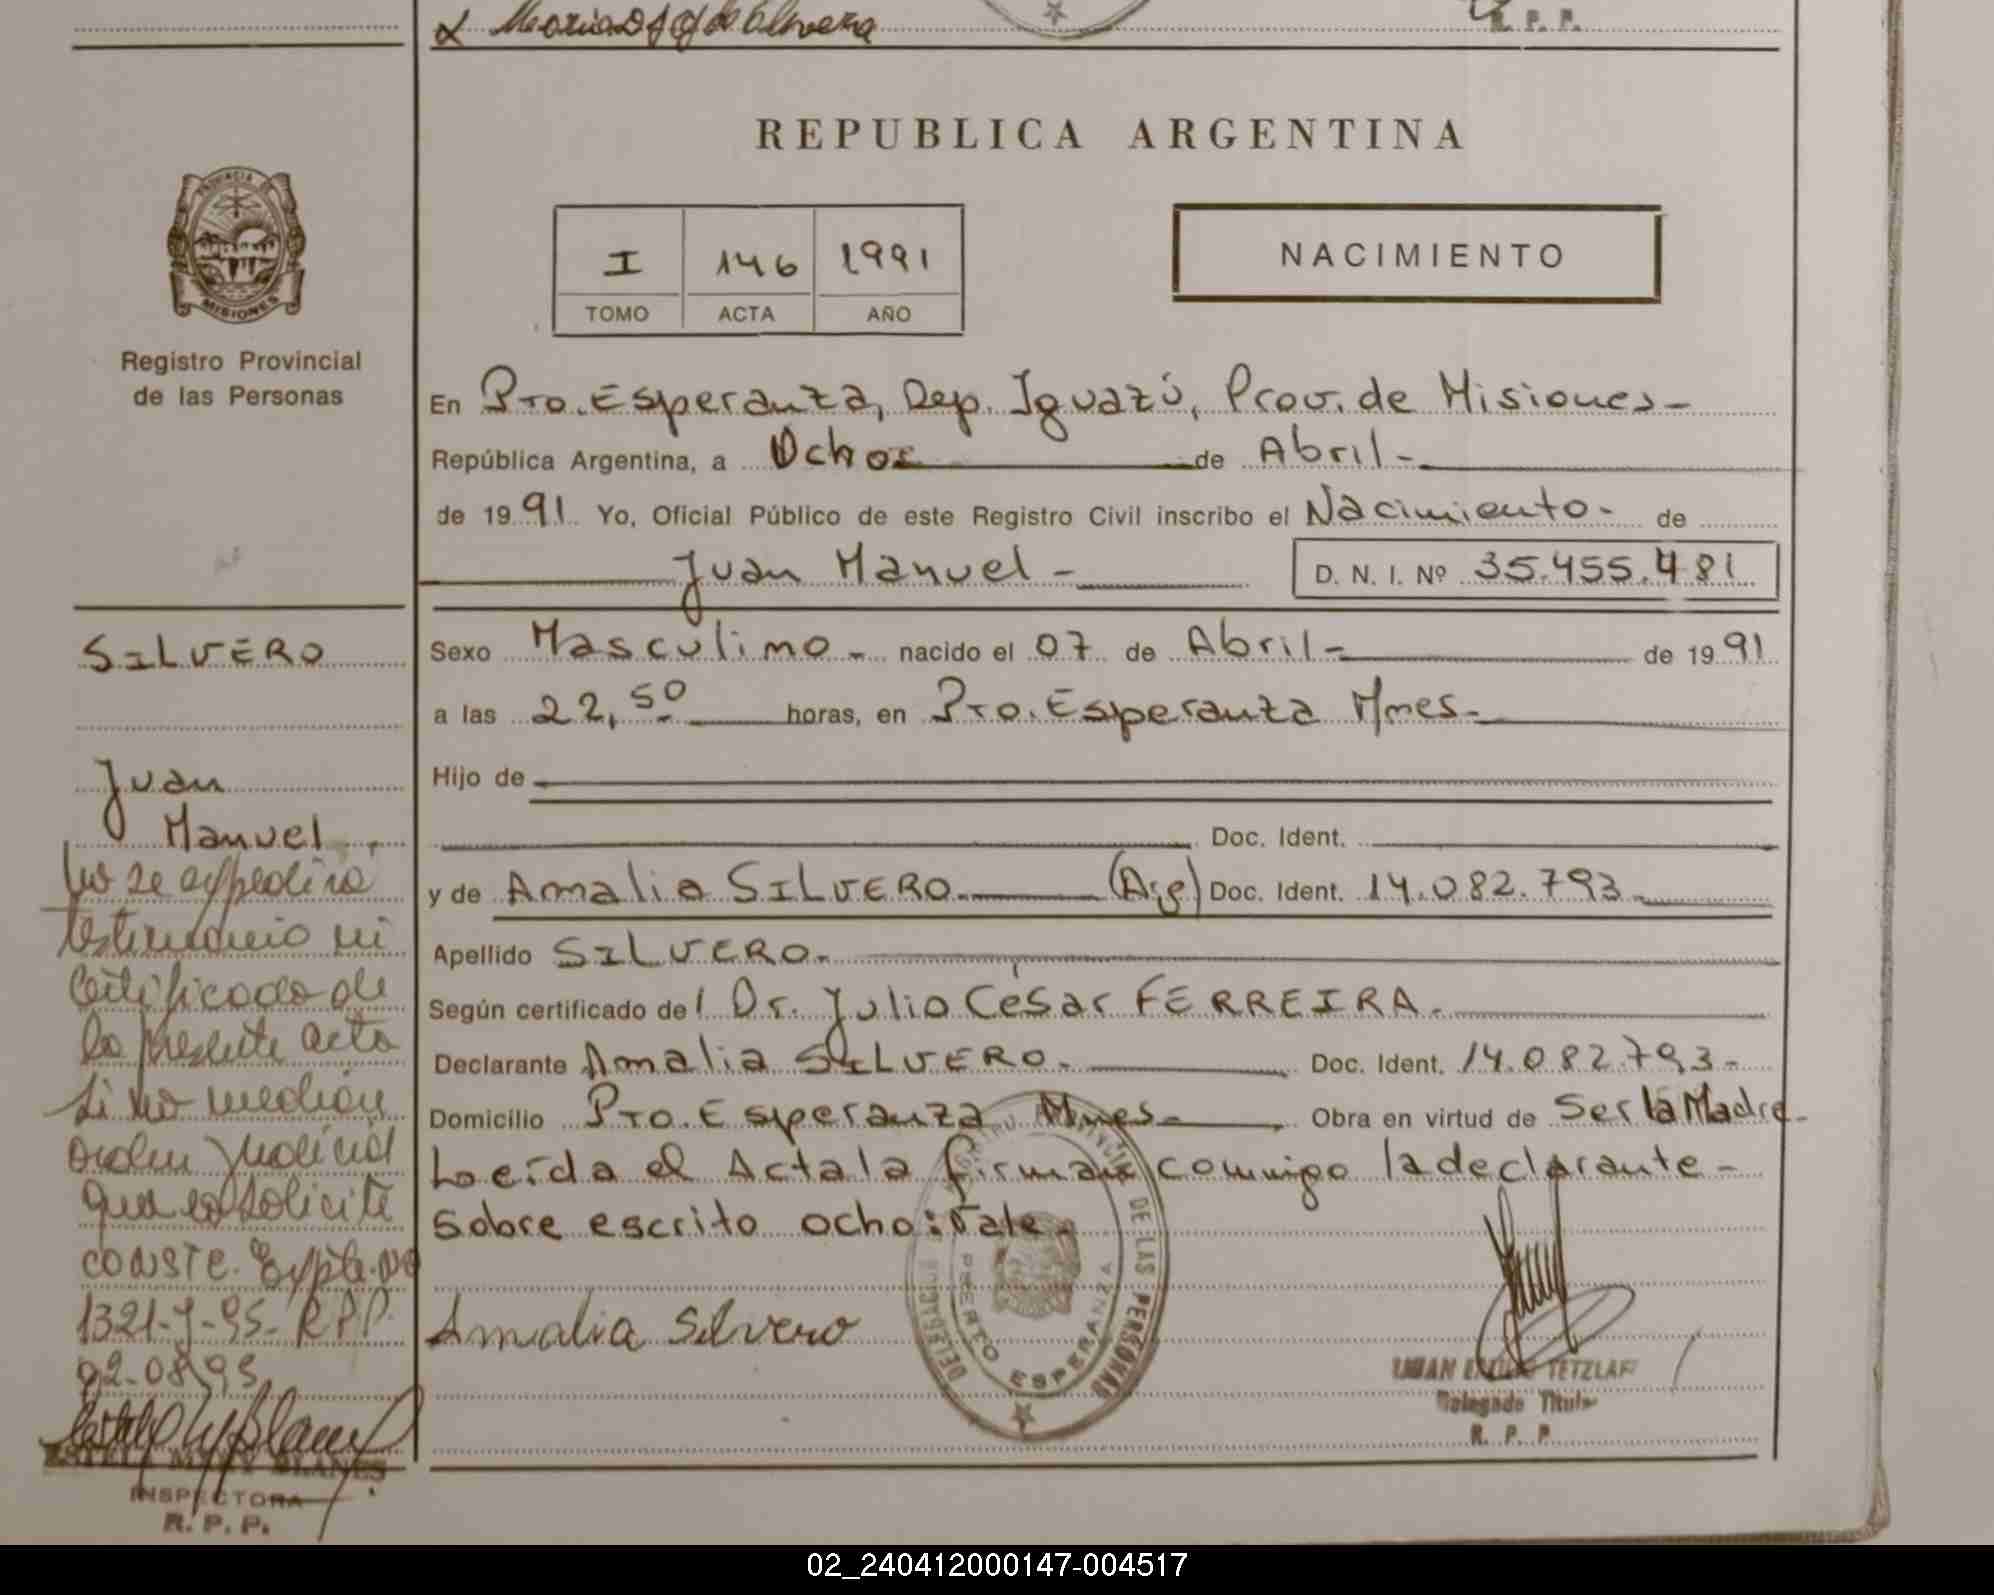 R. P. P.
REPUBLICA ARGENTINA
PROVINCIA DE
MISIONES
Registro Provincial
de las Personas
I 146 1991
TOMO ACTA AÑO
NACIMIENTO
En Pto. Esperanza, Dep. Iguazú, Prov. de Misiones-
República Argentina, a Ocho de Abril-
de 1991 Yo, Oficial Público de este Registro Civil inscribo el Nacimiento- de
Juan Manuel- D. N. I. Nº 35.455.481
Sexo Masculino- nacido el 07 de Abril- de 1991
a las 22,50 horas, en Pto. Esperanza Mnes-
Hijo de
Doc. Ident.
y de Amalia SILVERO- (Arg) Doc. Ident. 14.082.793-
Apellido SILVERO-
Según certificado del Dr. Julio César FERREIRA-
Declarante Amalia SILVERO- Doc. Ident. 14.082.793-
Domicilio Pto. Esperanza Mnes- Obra en virtud de Ser la Madre-
Leída el Acta la firman conmigo la declarante-
Sobre escrito ocho: Vale-
Amalia Silvero
DELEGACION PUERTO ESPERANZA
DE LAS PERSONAS
TETZLAF
Delegado Titular
R. P. P.
SILVERO
Juan
Manuel
No se expedirá
testimonio ni
certificado de
la presente acta
si no median
orden judicial
que lo solicite
CONSTE. Expte. Nº
1321-J-95- R.P.P.
02-08-95
BLANES
INSPECTORA
R. P. P.
02_240412000147-004517